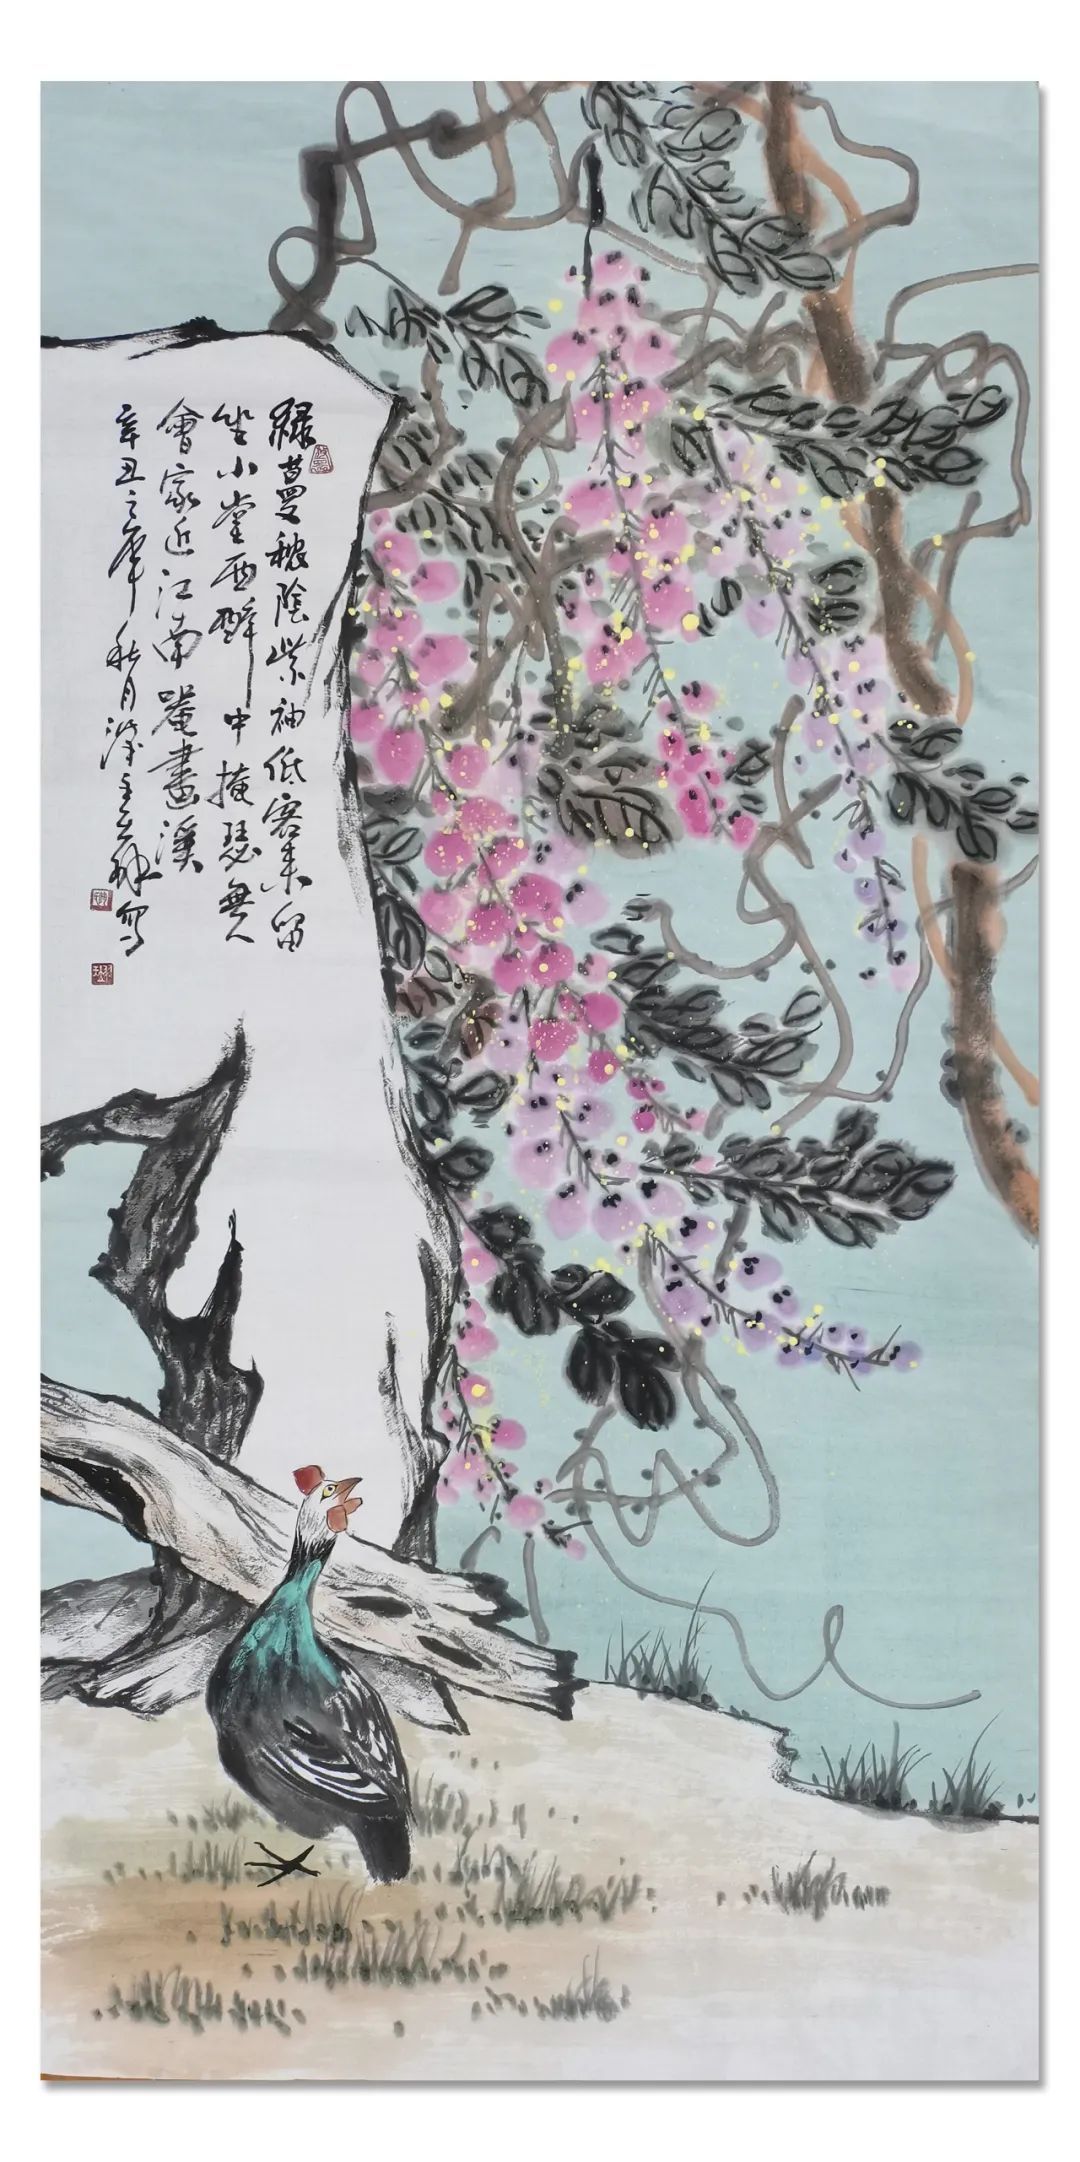 緑蔓秾陰紫袖低客来留
坐小堂西醉中掩瑟無人
會家近江南罨畫溪
辛丑之年秋月寫